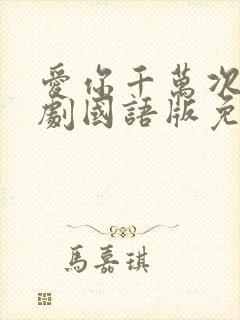 愛你千萬次
劇國語版免
馬嘉琪